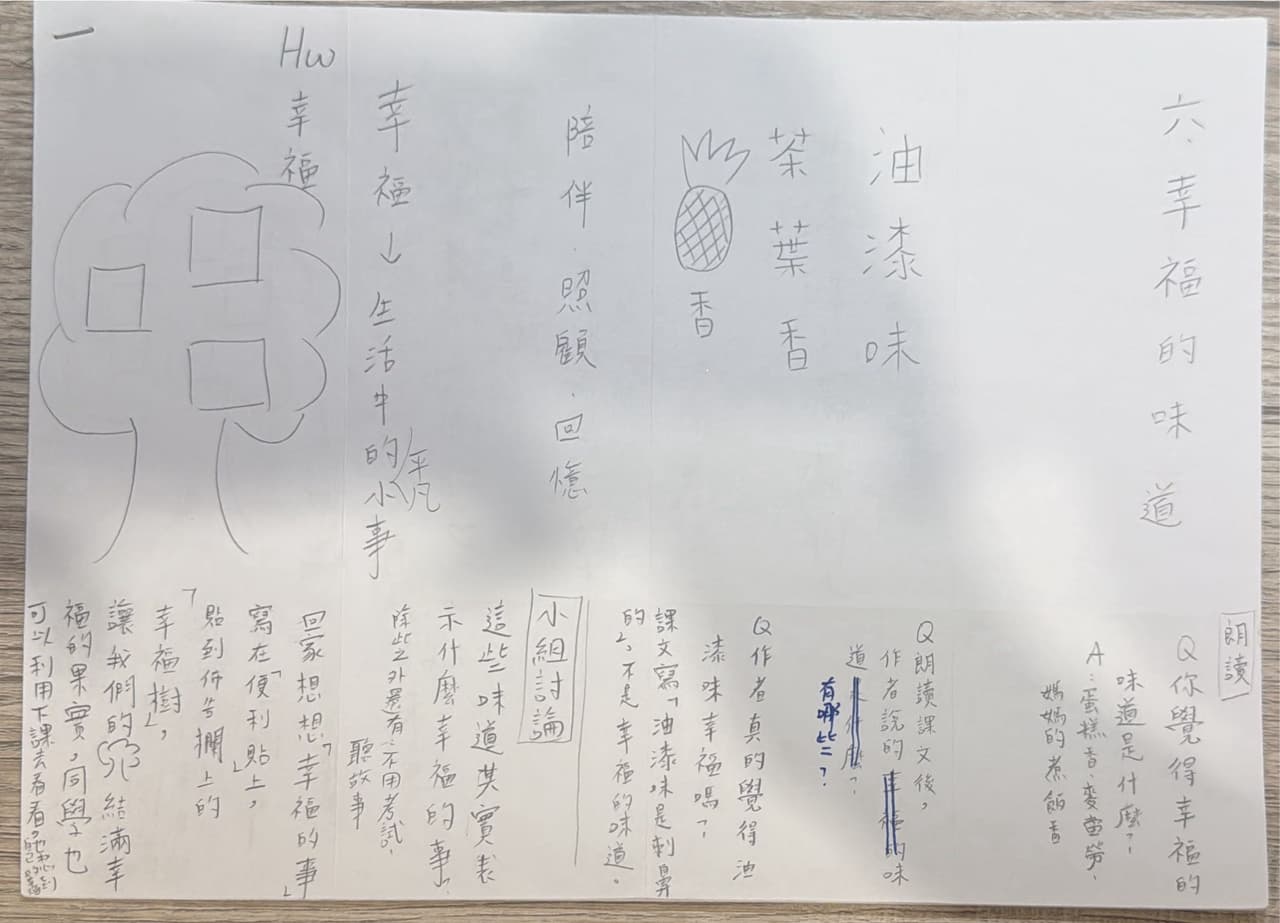 六、幸福的味道
油漆味
茶葉香
香
陪伴、照顧、回憶
幸福↓生活中的平凡小事
Hw
幸福
朗讀
Q你覺得幸福的
味道是什麼?
A:蛋糕香、麥當勞、
媽媽的煮飯香
Q朗讀課文後,
作者說的幸福的味
道是什麼?
有哪些?
Q作者真的覺得油
漆味幸福嗎?
課文寫「油漆味是刺鼻
的」,不是幸福的味道。
小組討論
這些味道其實表
示什麼幸福的事?
除此之外還有:不用考試、
聽故事
回家想想「幸福的事」
寫在「便利貼」上,
貼到佈告欄上的
「幸福樹」,
讓我們的結滿幸
福的果實,同學也
可以利用下課去看看